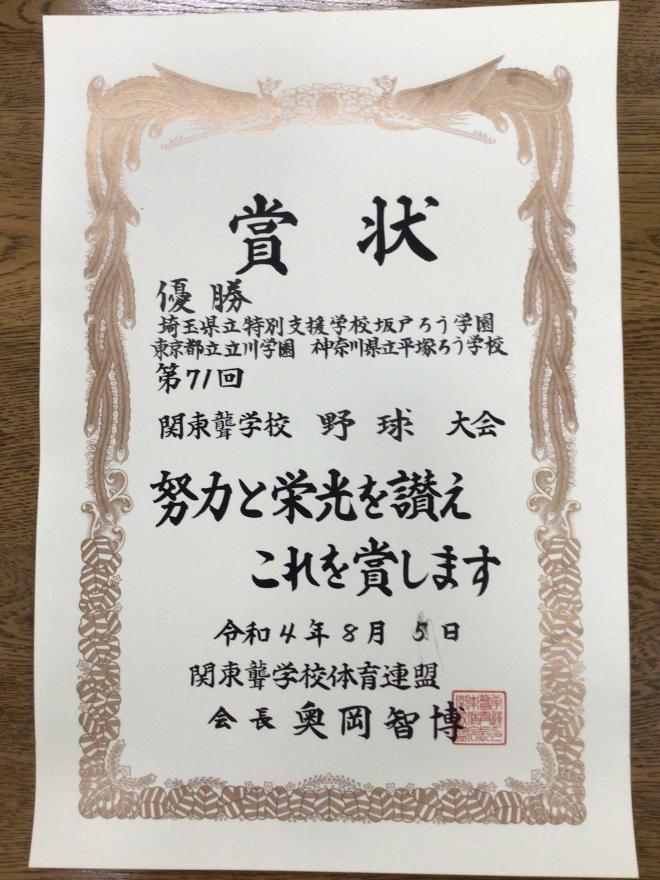 賞状
優勝
埼玉県立特別支援学校坂戸ろう学園
東京都立立川学園 神奈川県立平塚ろう学校
第71回
関東聾学校 野球 大会
努力と栄光を讃え
これを賞します
令和4年8月5日
関東聾学校体育連盟
会長 奥岡智博